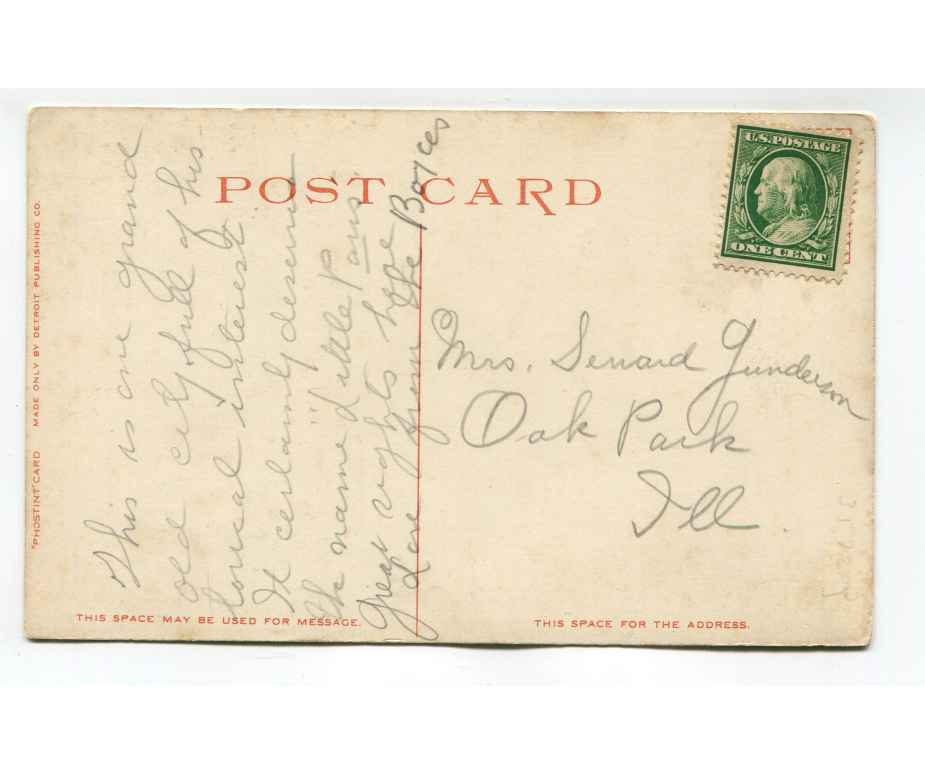 POST CARD
U.S. POSTAGE
ONE CENT
This is one grand
old city full of his
torical interest
It certainly deserves
the name of "little Paris"
Great sights here
Love from the Boyces
Mrs. Senard Gunderson
Oak Park
Ill.
"PHOSTINT" CARD MADE ONLY BY DETROIT PUBLISHING CO.
THIS SPACE MAY BE USED FOR MESSAGE.
THIS SPACE FOR THE ADDRESS.